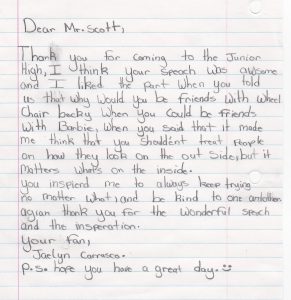 Dear Mr. Scott,
Thank you for coming to the Junior
High, I think your speach was awsome
and I liked the part when you told
us that why would you be friends with wheel
chair becky when you could be friends
with Barbie, when you said that it made
me think that you shouldn't treat people
on how they look on the out side, but it
matters whats on the inside.
you inspierd me to always keep trying
no matter what, and be kind to one antother
agian thank you for the wonderful speach
and the insperation.
your fan,
Jaelyn Carrasco.
p.s. hope you have a great day. ☺